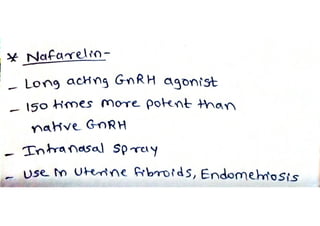 * Nafarelin-
- Long acting GnRH agonist
- 150 times more potent than
native GnRH
- Intranasal spray
- Use in Uterine fibroids, Endometriosis